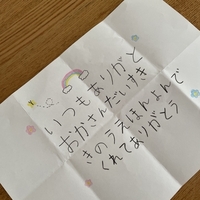 いつもありがと
おかさんだいすき
きのうえほんよんで
くれてありがとう